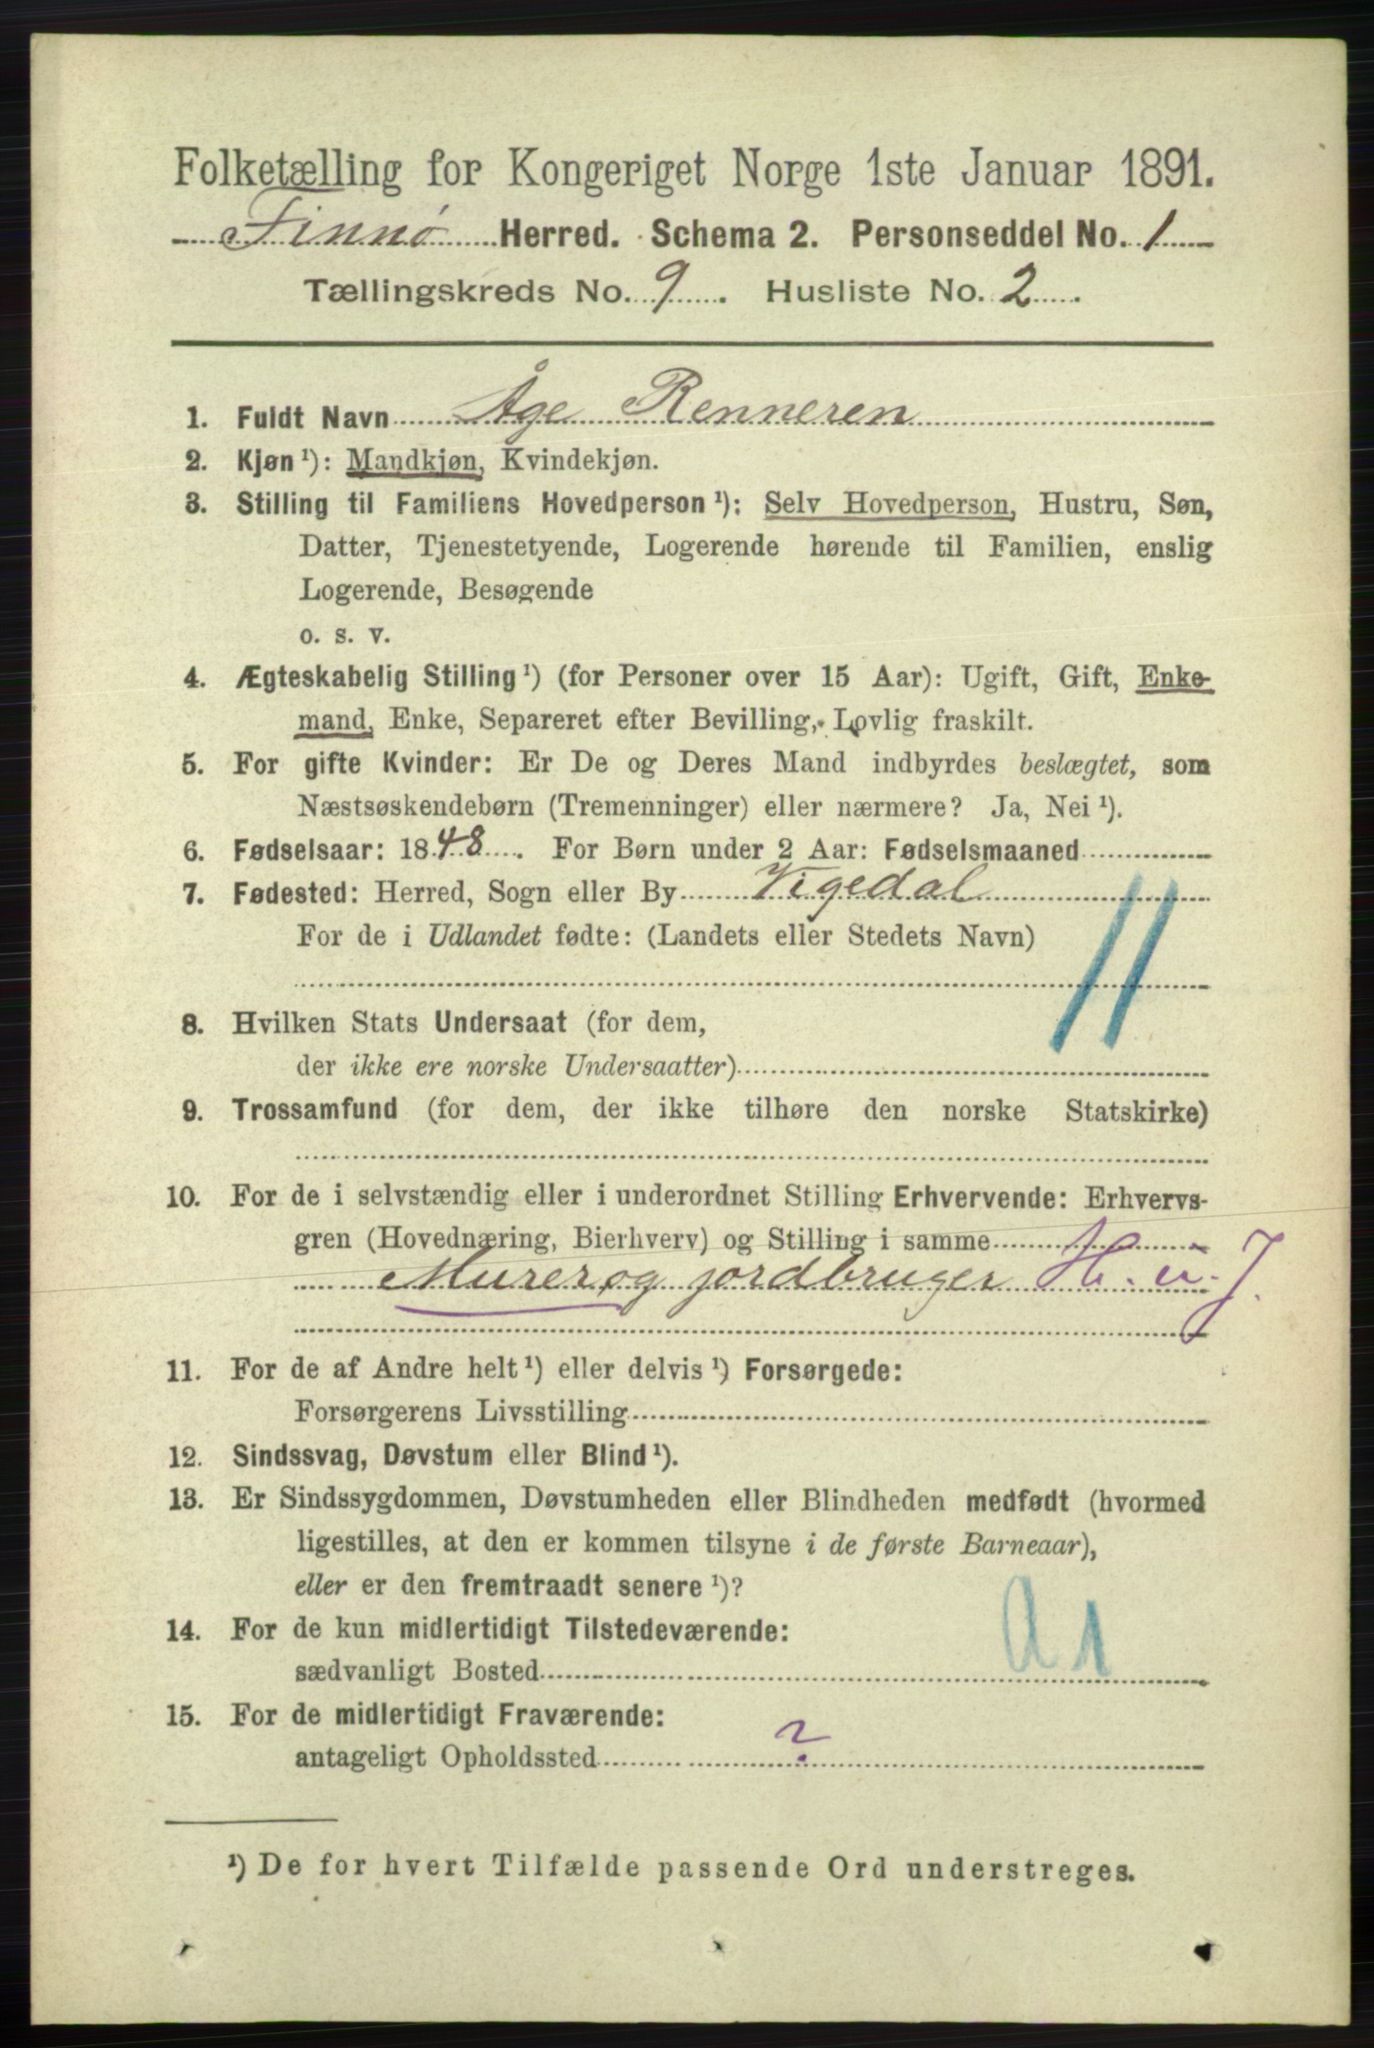 Folketælling for Kongeriget Norge 1ste Januar 1891.
Finnø Herred. Schema 2. Personseddel No. 1
Tællingskreds No. 9. Husliste No. 2.
1. Fuldt Navn Åge Renneren
2. Kjøn ¹): Mandkjøn, Kvindekjøn.
3. Stilling til Familiens Hovedperson ¹): Selv Hovedperson, Hustru, Søn,
Datter, Tjenestetyende, Logerende hørende til Familien, enslig
Logerende, Besøgende
o. s. v.
4. Ægteskabelig Stilling ¹) (for Personer over 15 Aar): Ugift, Gift, Enke-
mand, Enke, Separeret efter Bevilling, Lovlig fraskilt.
5. For gifte Kvinder: Er De og Deres Mand indbyrdes beslægtet, som
Næstsøskendebørn (Tremenninger) eller nærmere? Ja, Nei ¹).
6. Fødselsaar: 1848. For Børn under 2 Aar: Fødselsmaaned
7. Fødested: Herred, Sogn eller By Vigedal
For de i Udlandet fødte: (Landets eller Stedets Navn)
11
8. Hvilken Stats Undersaat (for dem,
der ikke ere norske Undersaatter)
9. Trossamfund (for dem, der ikke tilhøre den norske Statskirke)
10. For de i selvstændig eller i underordnet Stilling Erhvervende: Erhvervs-
gren (Hovednæring, Bierhverv) og Stilling i samme
Murer og jordbruger H. u. J.
11. For de af Andre helt ¹) eller delvis ¹) Forsørgede:
Forsørgerens Livsstilling
12. Sindssvag, Døvstum eller Blind ¹).
13. Er Sindssygdommen, Døvstumheden eller Blindheden medfødt (hvormed
ligestilles, at den er kommen tilsyne i de første Barneaar),
eller er den fremtraadt senere ¹)?
14. For de kun midlertidigt Tilstedeværende:
sædvanligt Bosted
a 1
15. For de midlertidigt Fraværende:
antageligt Opholdssted ?
¹) De for hvert Tilfælde passende Ord understreges.